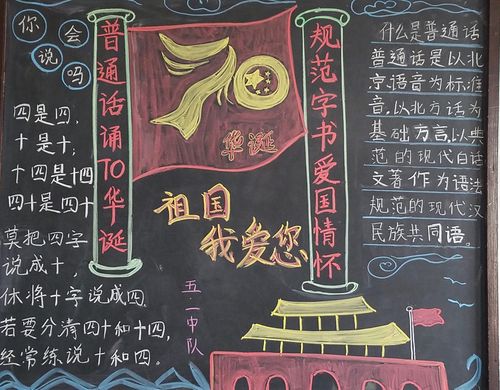 你会
说吗
四是四，
十是十；
十四是十四
四十是四十
莫把四字
说成十，
休将十字说成四.
若要分清四十和十四，
经常练说十和四。
普通话诵70华诞
70
华诞
规范字书爱国情怀
祖国
我爱您
五·一中队
什么是普通话
普通话是以北
京语音为标准
音，以北方话为
基础方言，以典
范的现代白话
文著作为语法
规范的现代汉
民族共同语。